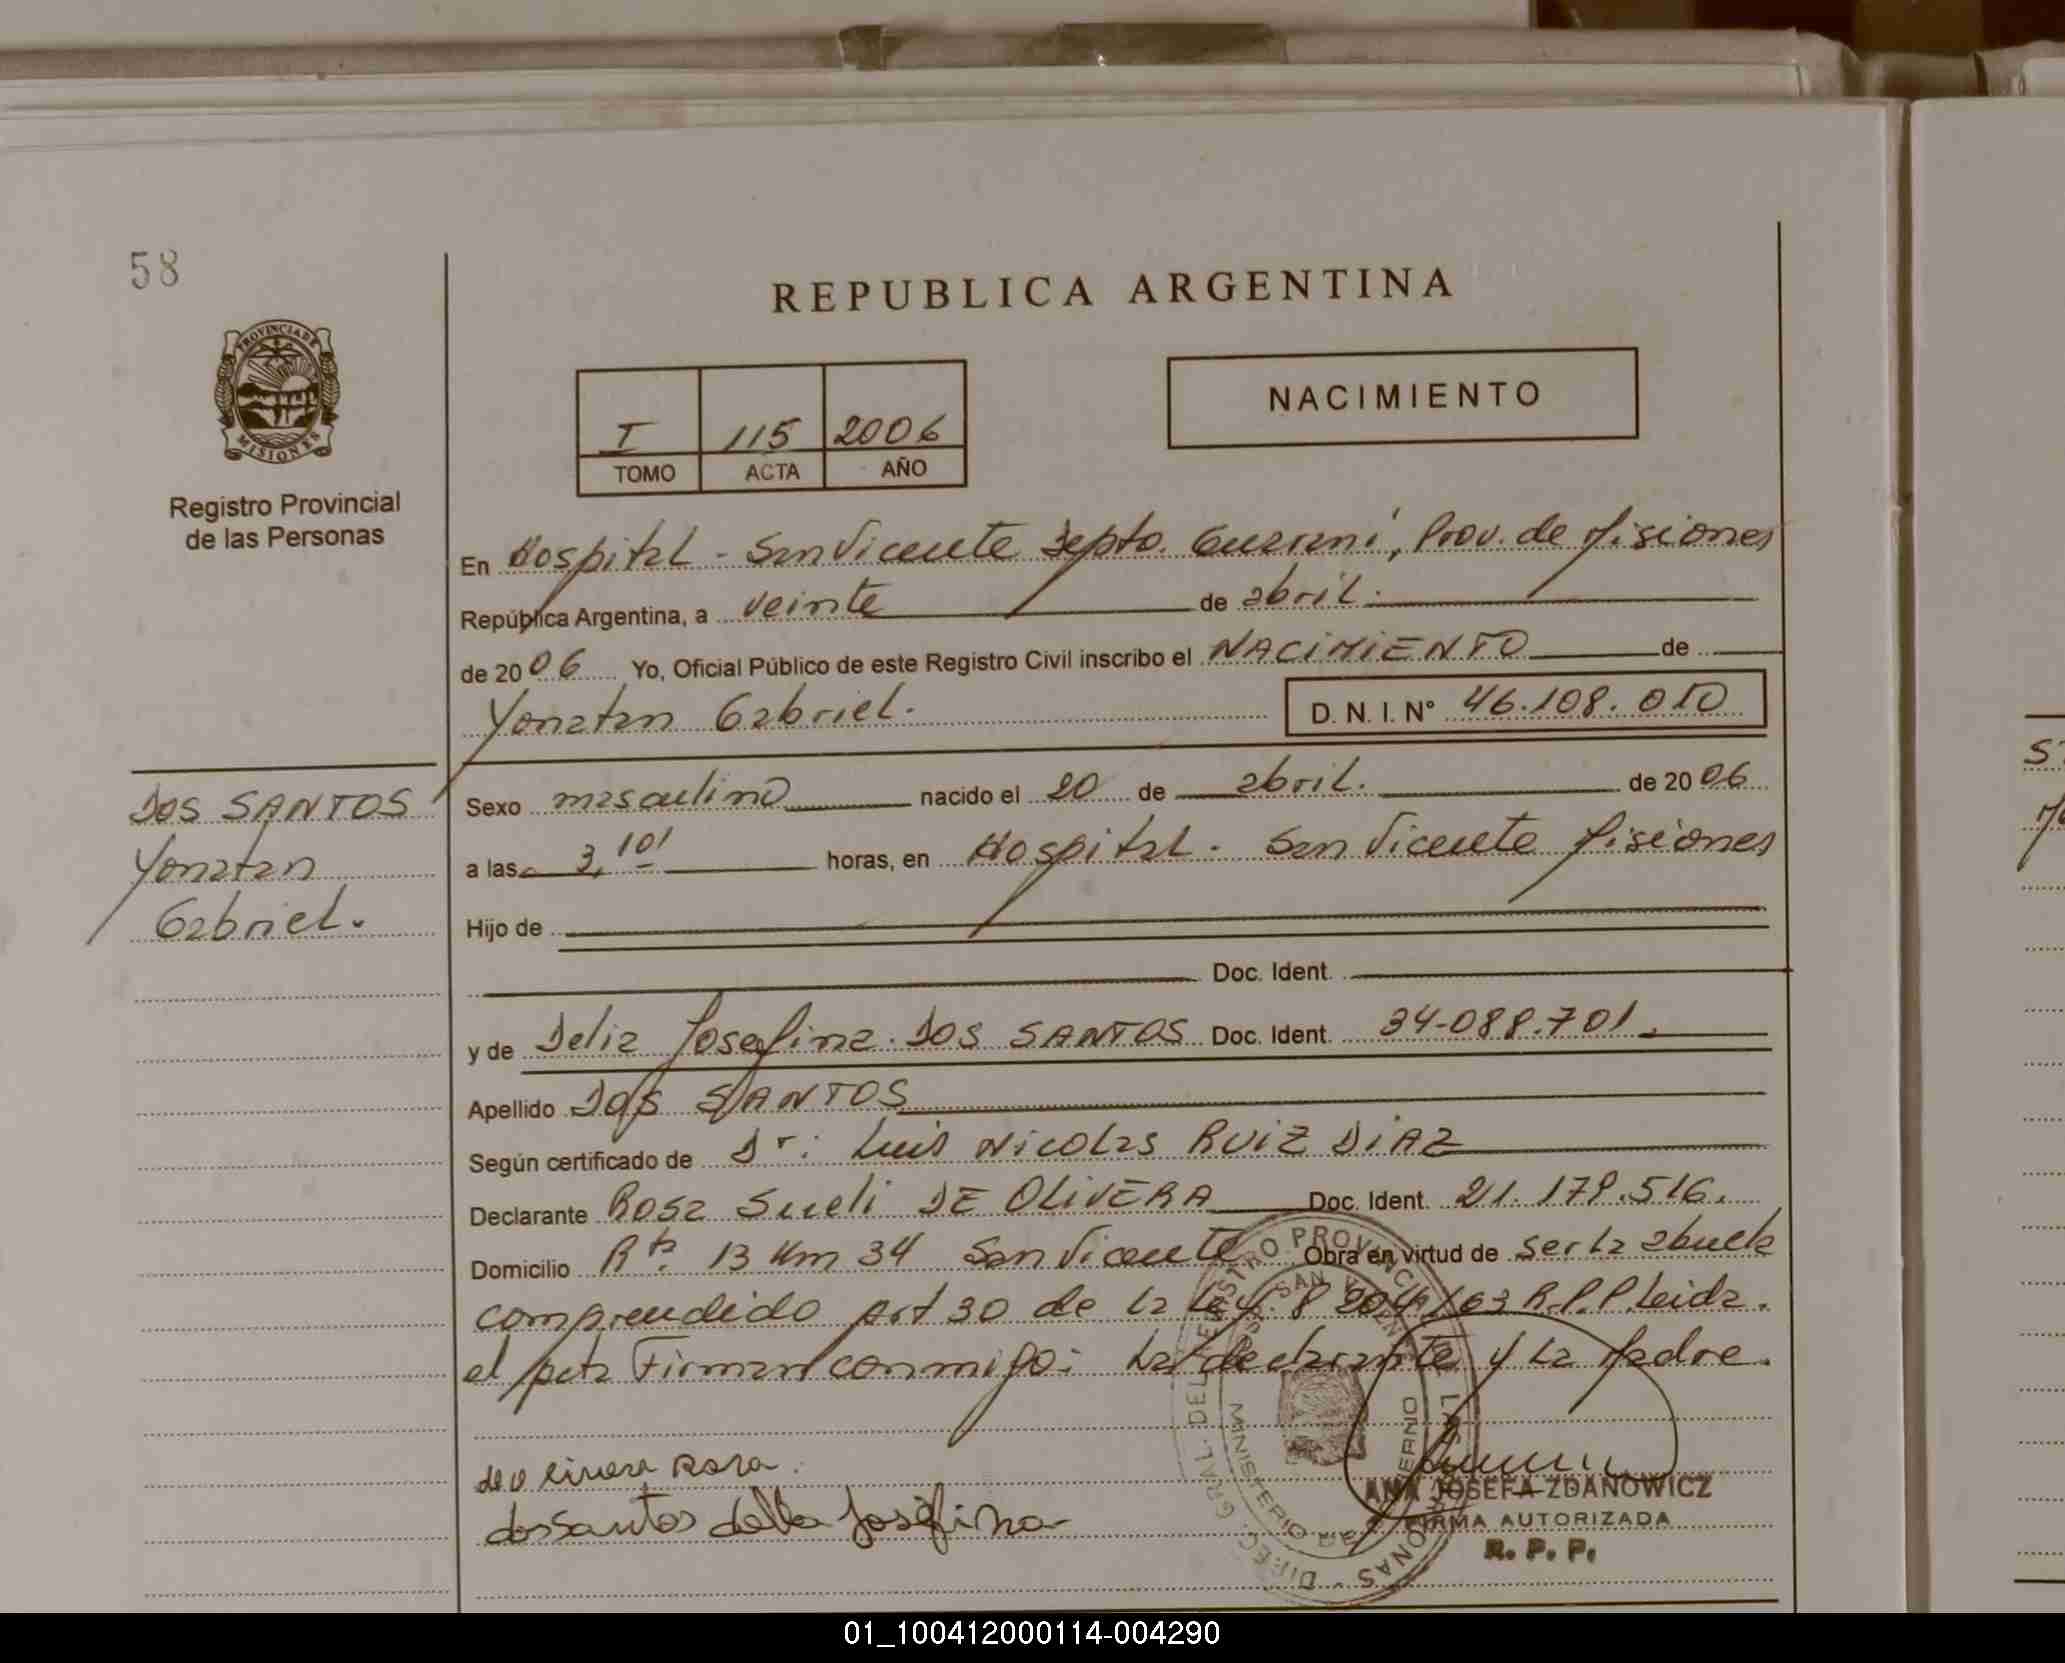 58
REPUBLICA ARGENTINA
PROVINCIA DE
MISIONES
Registro Provincial
de las Personas
I 115 2006
TOMO ACTA AÑO
NACIMIENTO
En Hospital - San Vicente Depto. Guaraní, Prov. de Misiones
República Argentina, a veinte de abril.
de 2006 Yo, Oficial Público de este Registro Civil inscribo el NACIMIENTO de
Yonatan Gabriel. D. N. I. N° 46.108.010
DOS SANTOS
Yonatan
Gabriel.
Sexo masculino nacido el 20 de abril. de 2006
a las 3,10' horas, en Hospital. San Vicente Misiones
Hijo de
Doc. Ident.
y de Delia Josefina DOS SANTOS Doc. Ident. 34.088.701.
Apellido DOS SANTOS
Según certificado de Dr: Luis Nicolas RUIZ DIAZ
Declarante Rosa Sueli DE OLIVERA Doc. Ident. 21.179.516.
Domicilio Rta. 13 Km 34 San Vicente Obra en virtud de ser la abuela
comprendido Art 30 de la Ley. 8204/63 R.P.P. Leida.
el acta Firman conmigo: La declarante y La Madre.
de olivera Rosa.
dosSantos delia Josefina
ANA JOSEFA ZDANOWICZ
FIRMA AUTORIZADA
R. P. P.
01_100412000114-004290